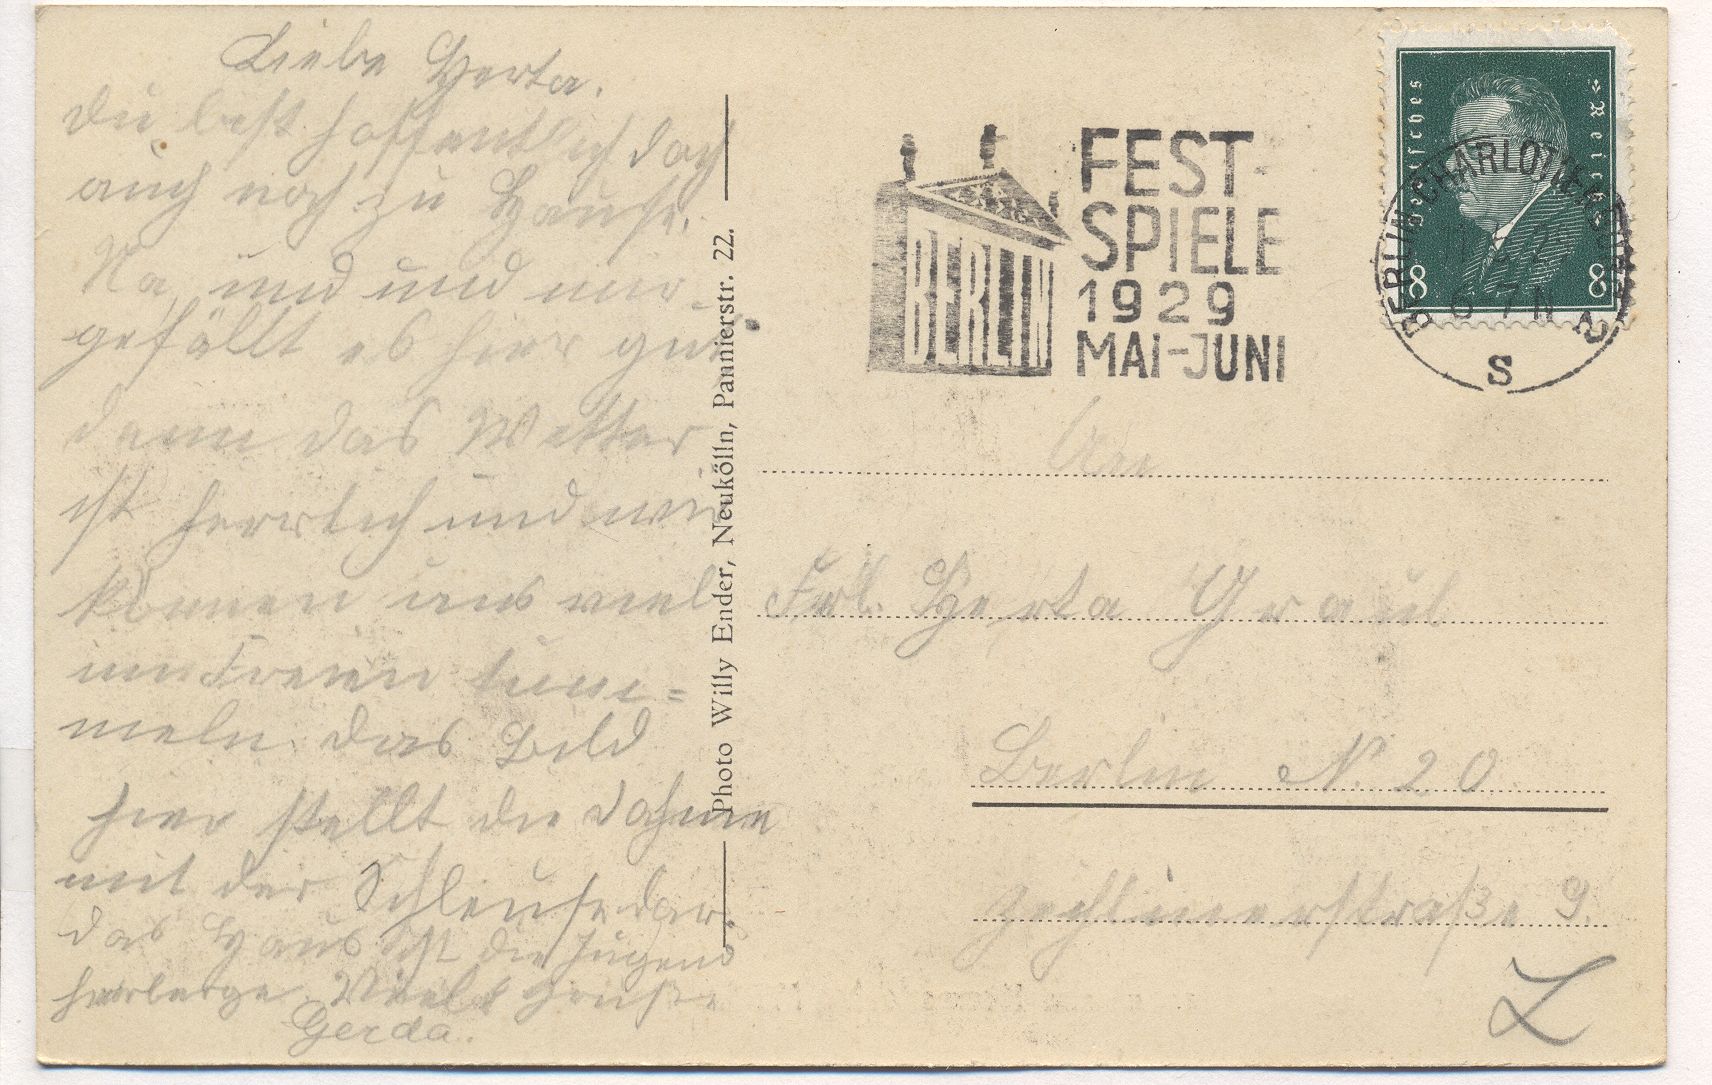 Liebe Herta.
Du bist hoffentlich doch
auch noch zu Hause.
Na, und und mir
gefällt es hier gut
denn das Wetter
ist herrlich und wir
können uns viel
im Freien tum=
meln. das Bild
hier stellt die Dahme
mit der Schleuse dar.
das Haus ist die Jugend
herberge. Viele Grüße
Gerda.
Photo Willy Ender, Neukölln, Pannierstr. 22.
FEST-
SPIELE
1929
MAI-JUNI
BERLIN
Deutsches Reich
8 8
BERLIN-CHARLOTTENBURG 2
6-7 N
S
An
Frl. Herta Graul
Berlin N. 20.
Zechlinerstraße 9.